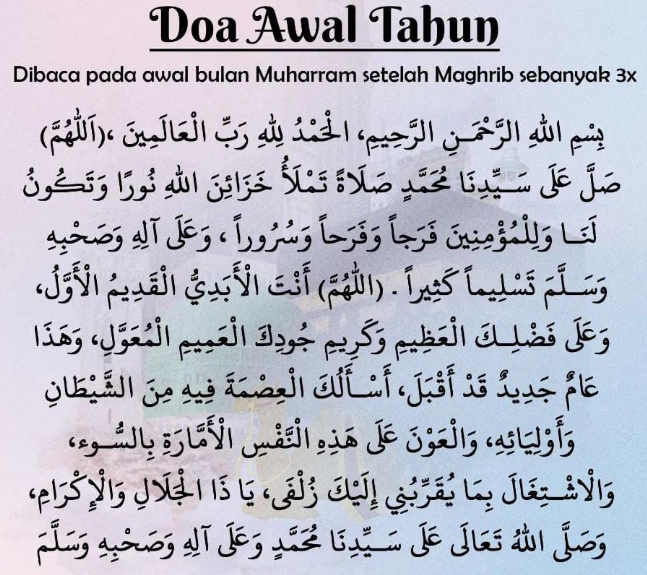 Doa Awal Tahun
Dibaca pada awal bulan Muharram setelah Maghrib sebanyak 3x
بِسْمِ اللهِ الرَّحْمَـنِ الرَّحِيمِ، الْحَمْدُ لِلهِ رَبِّ الْعَالَمِينَ ،(اَللّٰهُمَّ)
صَلَّ عَلَى سَـيِّدِنَا مُحَمَّدٍ صَلَاةً تَمْلَأُ خَزَائِنَ اللهِ نُورًا وَتَكُونُ
لَنَـا وَلِلْمُؤْمِنِينَ فَرَجاً وَفَرَحاً وَسُرُوراً ، وَعَلَى آلِهِ وَصَحْبِهِ
وَسَـلَّمَ تَسْلِيماً كَثِيراً . (اللّٰهُمَّ) أَنْتَ الْأَبَدِيُّ الْقَدِيمُ الْأَوَّلُ،
وَعَلَى فَضْلِـكَ الْعَظِيمِ وَكَرِيمِ جُودِكَ الْعَمِيمِ الْمُعَوَّلِ، وَهَذَا
عَامٌ جَدِيدٌ قَدْ أَقْبَلَ، أَسْـأَلُكَ الْعِصْمَةَ فِيهِ مِنَ الشَّيْطَانِ
وَأَوْلِيَائِهِ، وَالْعَوْنَ عَلَى هَذِهِ النَّفْسِ الْأَمَّارَةِ بِالسُّـوءِ،
وَالْاشْـتِغَالَ بِمَا يُقَرِّبُنِي إِلَيْكَ زُلْفَى، يَا ذَا الْجَلَالِ وَالْإِكْرَامِ،
وَصَلَّى اللهُ تَعَالَى عَلَى سَـيِّدِنَا مُحَمَّدٍ وَعَلَى آلِهِ وَصَحْبِهِ وَسَلَّمَ